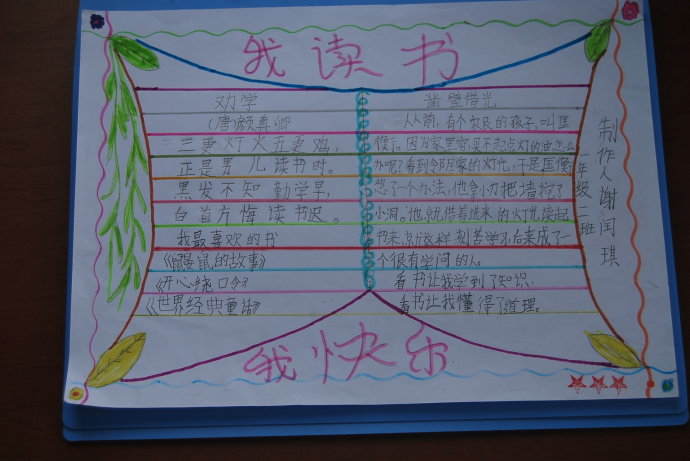 我读书
劝学
(唐)颜真卿
三更灯火五更鸡,
正是男儿读书时。
黑发不知勤学早,
白首方悔读书迟。
我最喜欢的书
《鼹鼠的故事》
《开心绕口令》
《世界经典童话》
凿壁借光
从前,有个农民的孩子,叫匡
衡。因为家里穷,买不起点灯的油,怎么
办呢?看到邻居家的灯光,于是匡衡
想了一个办法,他拿小刀把墙挖了
小洞。他就借着进来的灯光读起
书来,就这样刻苦学习,后来成了一
个很有学问的人。
看书让我学到了知识,
看书让我懂得了道理。
年级二班
制作人谢闰琪
我快乐